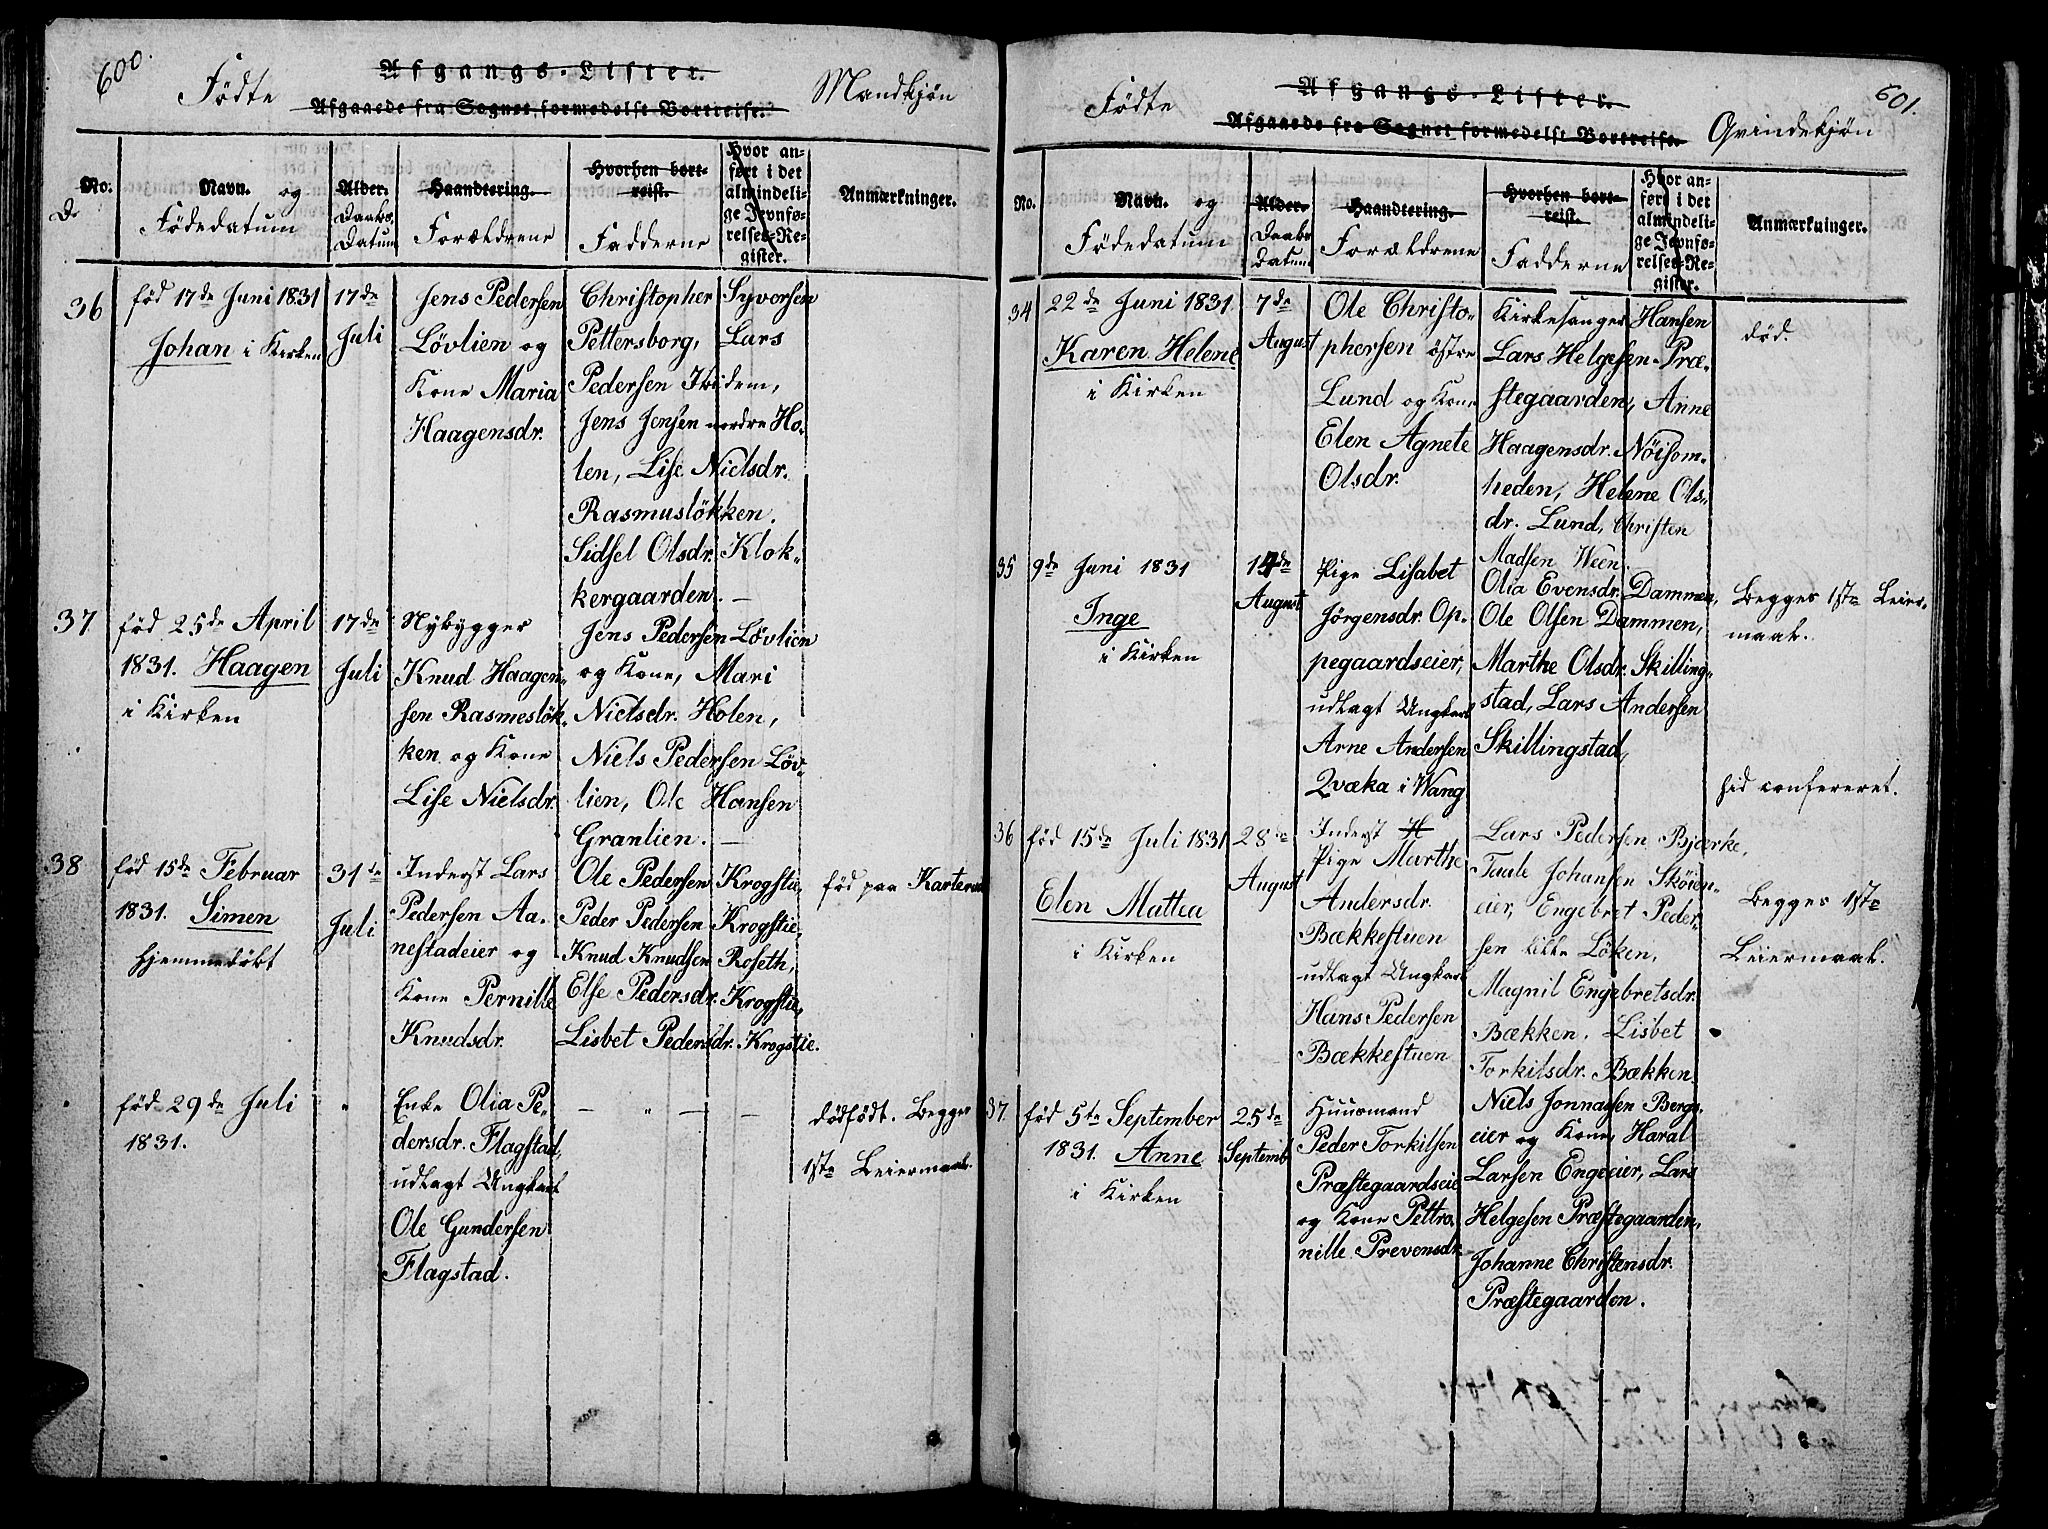 600.
Afgangs-Lister.
Fødte
Mandkjøn
Afgaaede fra Sognet formedelst Bortreise.
No.
Navn. og
Fødedatum
Alder.
Daabs
Datum
Haandtering.
Forældrene
Hvorhen bort-
reist.
Fadderne
Hvor an-
ført i det
almindeli-
ge Jevnfø-
relses-Re-
gister.
Anmærkninger.
36
fød 17de Juni 1831
Johan i Kirken
17de
Juli
Jens Pedersen
Lövlien og
Kone Maria
Haagensdr.
Christopher Syvorsen
Pettersborg, Lars
Pedersen Ibidem,
Jens Jensen nordre Ho-
len, Lise Nielsdr.
Rasmuslökken.
Sidsel Olsdr. Klok-
kergaarden. —
37
fød 25de April
1831. Haagen
i Kirken
17de
Juli
Nybygger
Knud Haagen-
sen Rasmeslök-
ken og Kone
Lise Nielsdr.
Jens Pedersen Lövlien
og Kone, Mari
Nielsdr. Holen,
Niels Pedersen Löv-
lien, Ole Hansen
Granlien. —
38
fød 15de Februar
1831. Simen
hjemmedøbt
31de
Juli
Inderst Lars
Pedersen Aa-
nestadeier og
Kone Pernille
Knudsdr.
Ole Pedersen Krogstie,
Peder Pedersen Krogstie,
Knud Knudsen Roseth,
Else Pedersdr. Krogstie,
Lisbet Pedersdr. Krogstie.
fød paa
fød 29de Juli
1831.
"
Enke Olia Pe-
dersdr. Flagstad,
udlagt Ungkarl
Ole Gundersen
Flagstad.
— " — —
dödfödt. Begges
1ste Leiermaal.
601.
Afgangs-Lister.
Fødte
Qvindekjøn
Afgaaede fra Sognet formedelst Bortreise.
No.
Navn. og
Fødedatum
Alder.
Daabs
Datum
Haandtering.
Forældrene
Hvorhen bort-
reist.
Fadderne
Hvor an-
ført i det
almindeli-
ge Jevnfø-
relses-Re-
gister.
Anmærkninger.
34
22de Juni 1831.
Karen Helene
i Kirken
7de
August
Ole Christo-
phersen östre
Lund og Kone
Elen Agnete
Olsdr.
Kirkesanger Hansen
Lars Helgesen Præ-
stegaarden, Anne
Haagensdr. Nöisom-
heden, Helene Ols-
dr. Lund, Christen
Madsen Ween.
död.
35
9de Juni 1831
Inge
i Kirken
14de
August
Pige Lisabet
Jörgensdr. Op-
pegaardseier,
udlagt Ungkarl
Arne Andersen
Qvæka i Wang
Olia Evensdr. Dammen,
Ole Olsen Dammen,
Marthe Olsdr. Skilling-
stad, Lars Andersen
Skillingstad,
Begges 1ste Leier-
maal.
hid confereret.
36
fød 15de Juli 1831
Elen Mattea
i Kirken
28de
August
Inderst H
Pige Marthe
Andersdr.
Bækkestuen
udlagt Ungkarl
Hans Pedersen
Bækkestuen
Lars Pedersen Bjærke,
Taale Johansen Sköien-
eier, Engebret Peder-
sen lille Löken,
Magnil Engebretsdr.
Bækken, Lisbet
Torkilsdr. Bækken.
Begges 1ste
Leiermaal.
37.
fød 5te September
1831. Anne
i Kirken
25de
Septemb
Huusmand
Peder Torkilsen
Præstegaardseie
og Kone Pettro-
nille Prevensdr.
Niels Jonnasen Bergs-
eier og Kone, Haral
Larsen Engeeier, Lars
Helgesen Præstegaarden,
Johanne Christensdr.
Præstegaarden.